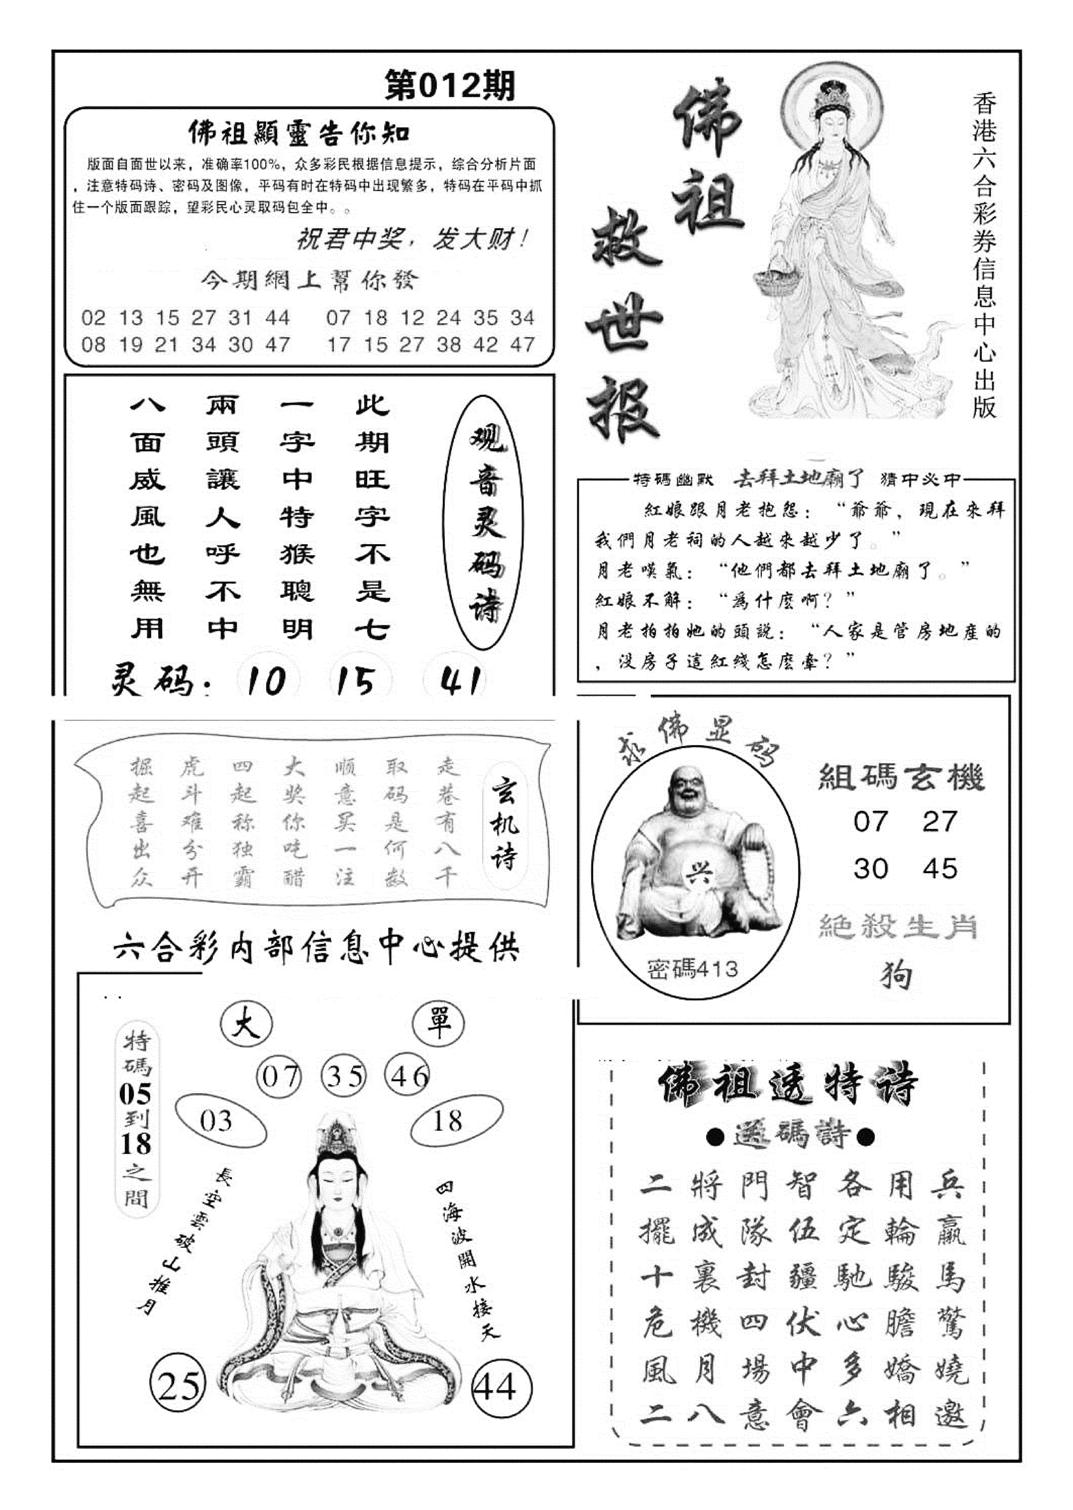 第012期
佛祖顯靈告你知
版面自面世以来，准确率100%，众多彩民根据信息提示，综合分析片面
，注意特码诗、密码及图像，平码有时在特码中出现繁多，特码在平码中抓
住一个版面跟踪，望彩民心灵取码包全中。。
祝君中奖，发大财！
今期網上幫你發
02 13 15 27 31 44 07 18 12 24 35 34
08 19 21 34 30 47 17 15 27 38 42 47
佛祖
救世报
香港六合彩券信息中心出版
观音灵码诗
此期旺字不是七
一字中特猴聰明
兩頭讓人呼不中
八面威風也無用
灵码：10 15 41
特碼幽默 去拜土地廟了 猜中必中
紅娘跟月老抱怨：“爺爺，現在來拜
我們月老祠的人越來越少了。”
月老嘆氣：“他們都去拜土地廟了。”
紅娘不解：“為什麼啊？”
月老拍拍她的頭説：“人家是管房地産的
，没房子這紅綫怎麽牽？”
玄机诗
走巷有八千
取码是何数
顺意买一注
大奖你吃醋
四起称独霸
虎斗难分开
掘起喜出众
六合彩内部信息中心提供
求佛显码
兴
密碼413
組碼玄機
07 27
30 45
絶殺生肖
狗
大 單
07 35 46
03 18
特碼05到18之間
長空雲破山推月
四海波開水接天
25 44
佛祖透特诗
●送碼詩●
二將門智各用兵
擺成隊伍定輪贏
十裏封疆馳駿馬
危機四伏心膽驚
風月場中多嬌嬈
二八意會六相邀